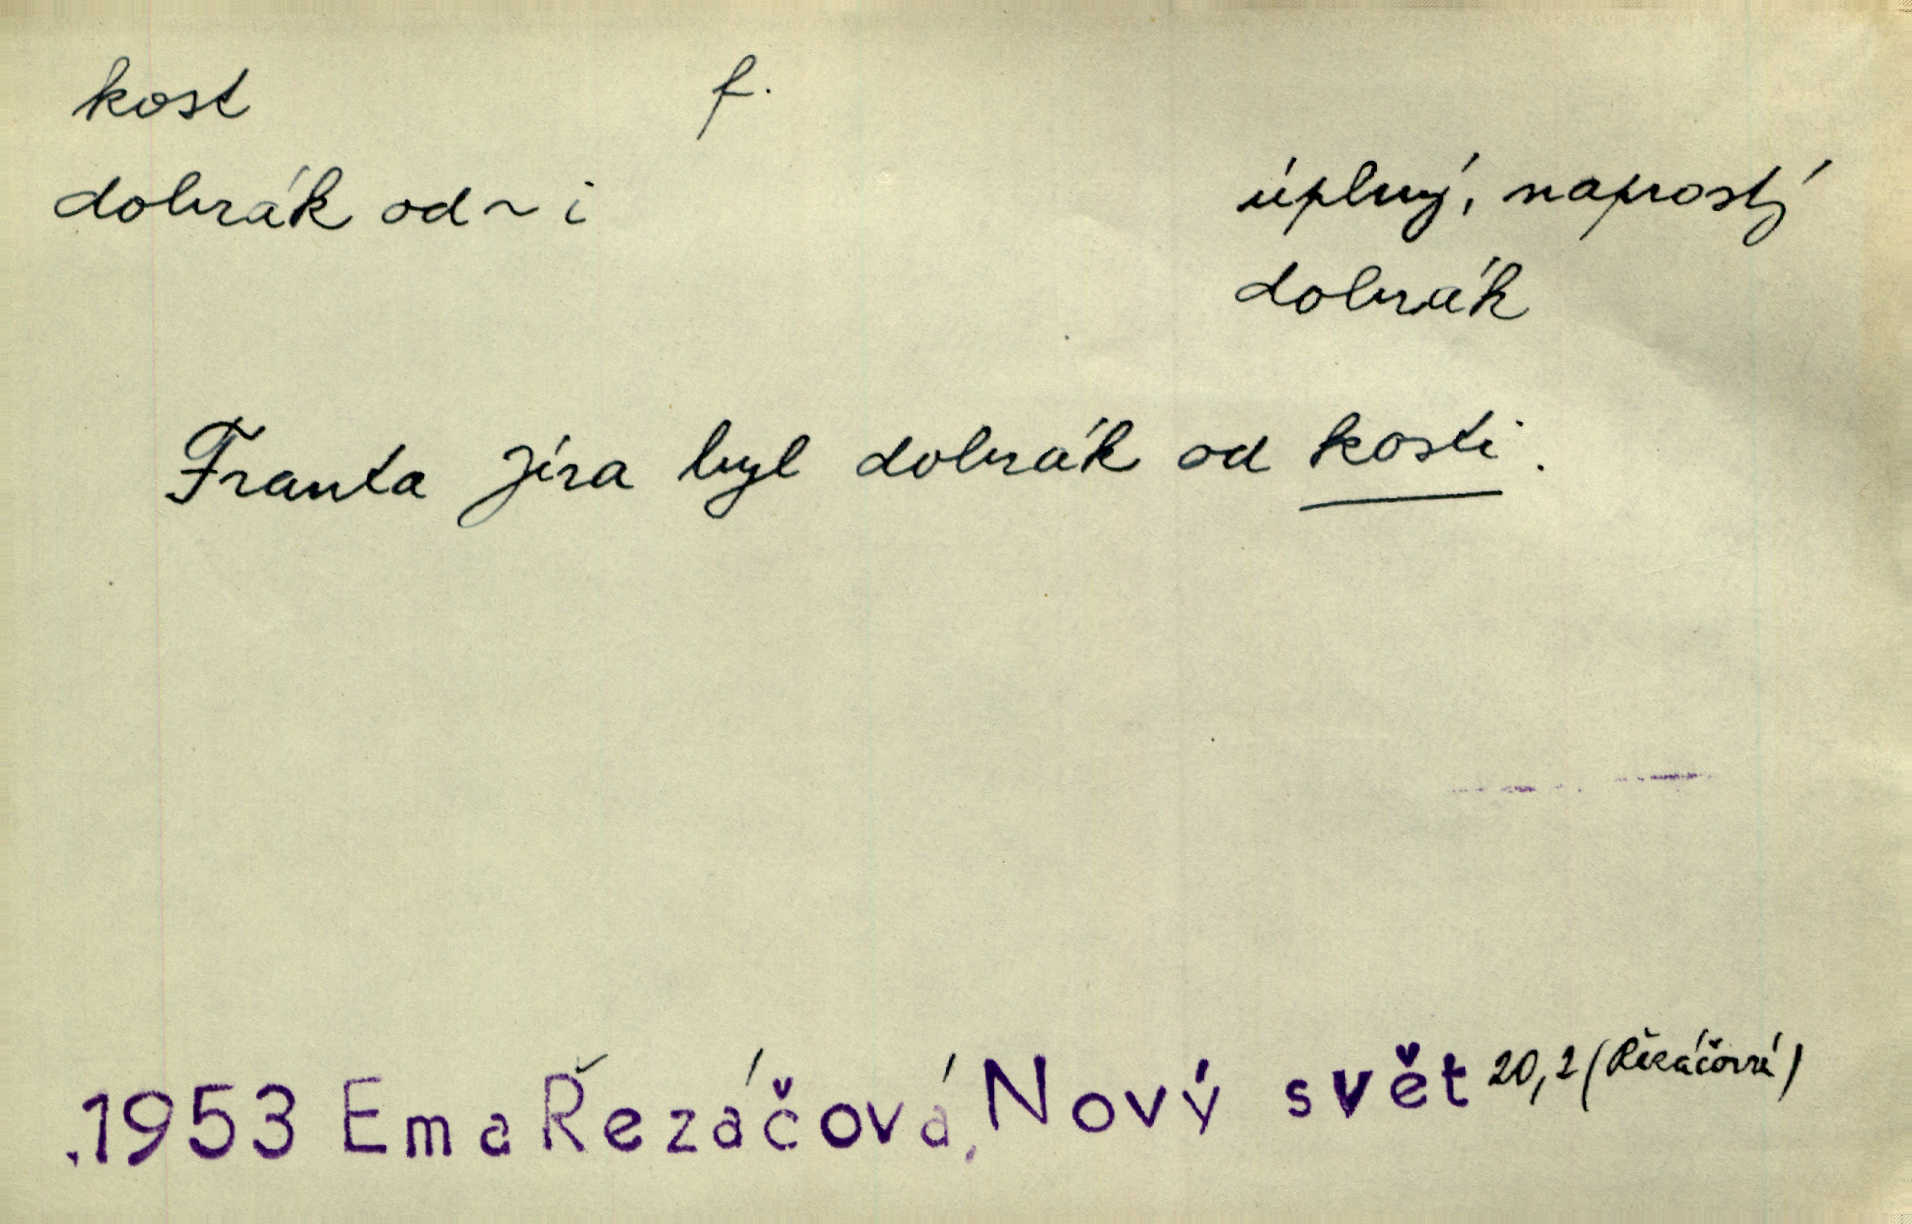 kost f.
dobrák od ~ i
úplný, naprostý
dobrák
Franta Jíra byl dobrák od kosti.
.1953 Ema Řezáčová, Nový svět 20,2 (Řezáčová)